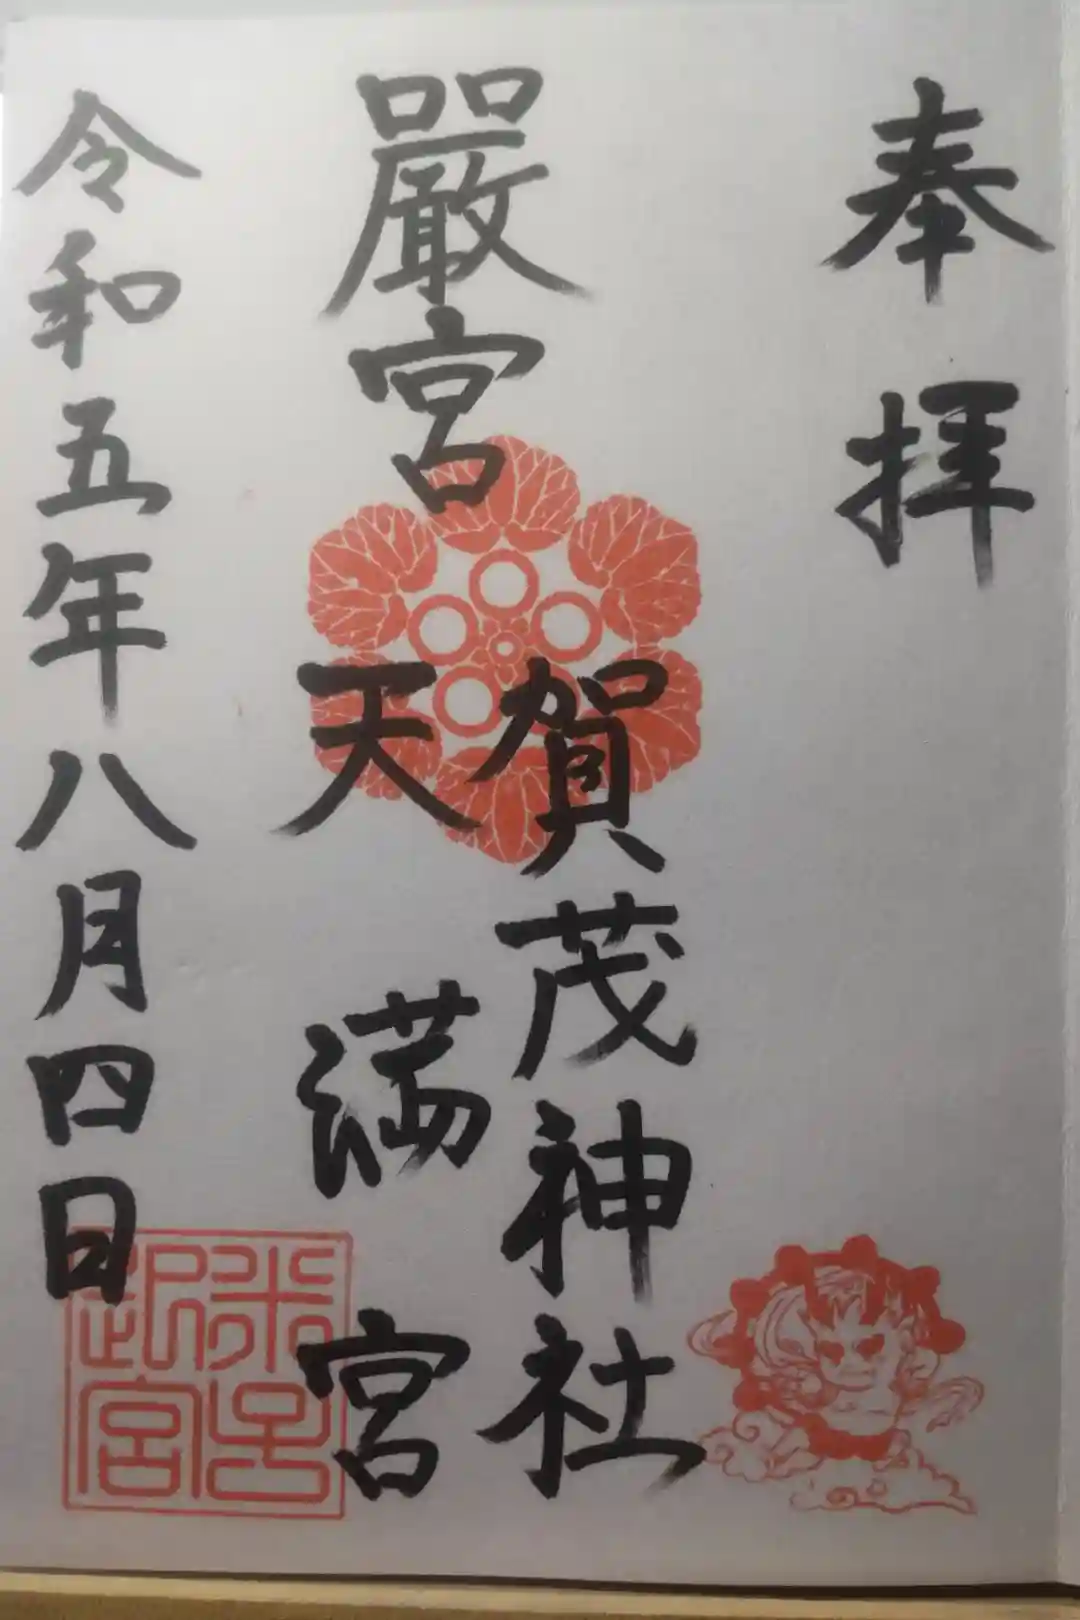 奉拝
嚴宮
賀茂神社
天満宮
令和五年八月四日